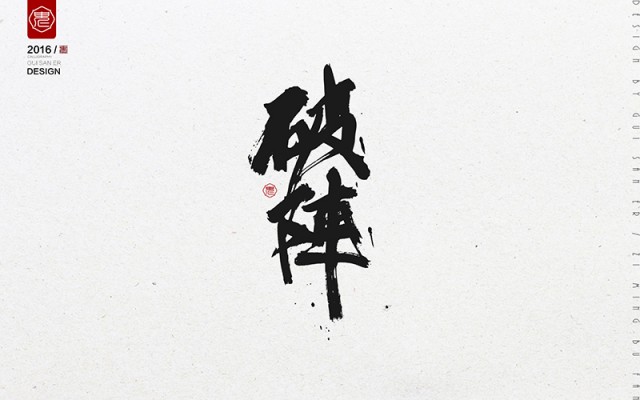 2016 /
CALLIGRAPHY
GUI SAN ER
DESIGN
破
陣
DESIGN BY GUI SAN ER / ZI MING BU FAN